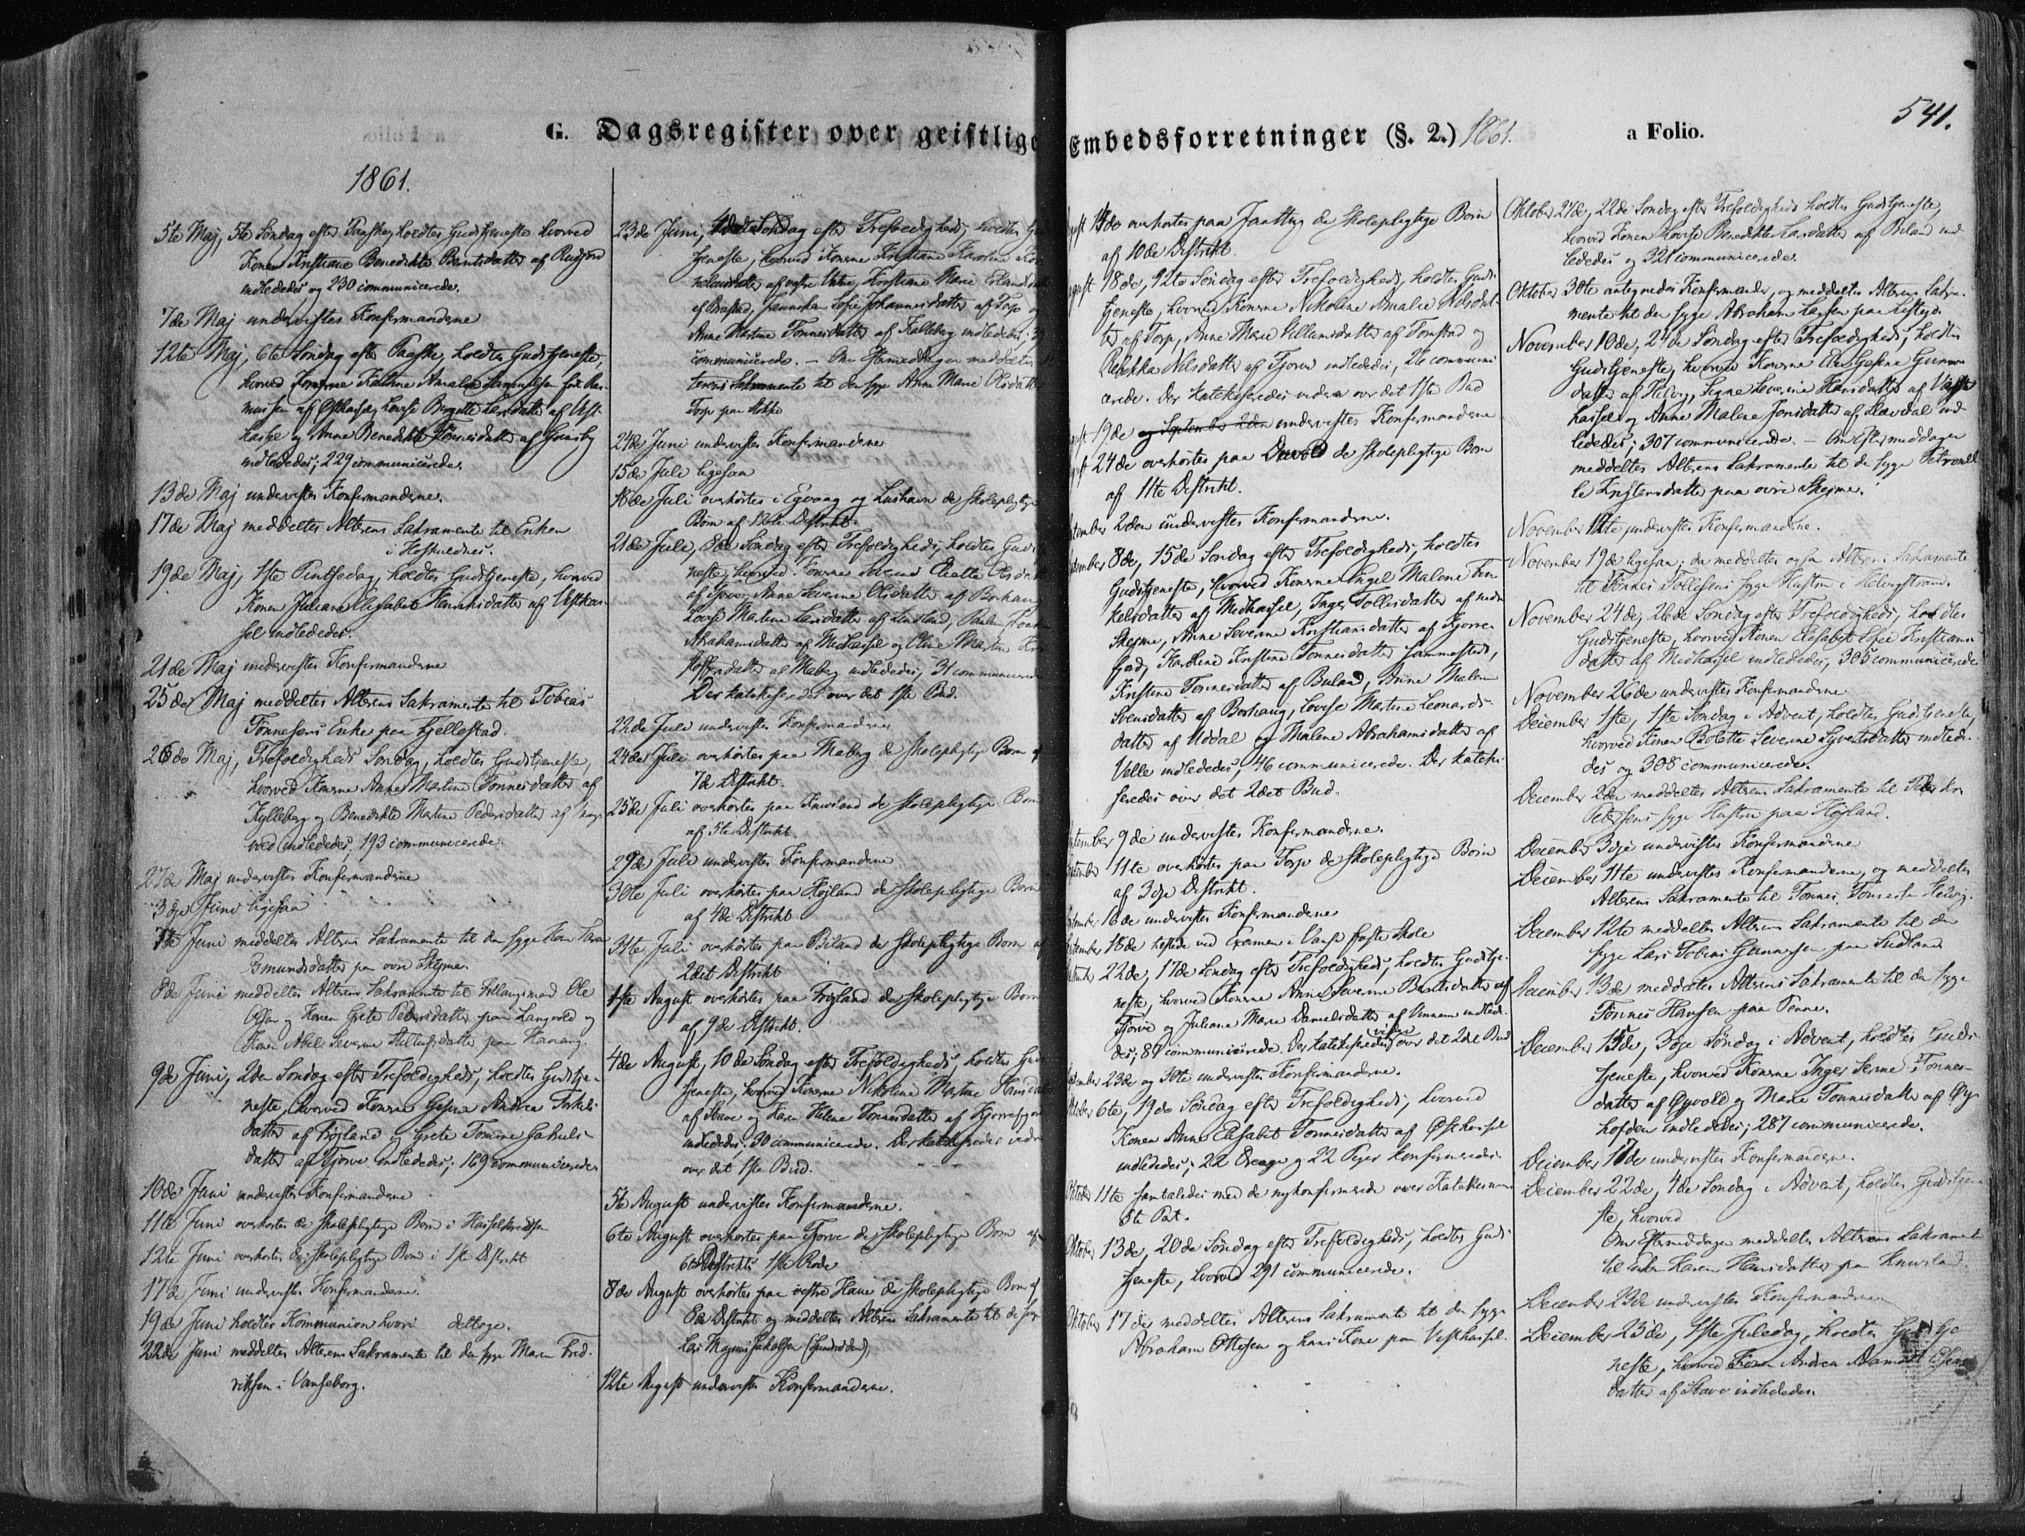 G. Dagsregister over geistlige Embedsforretninger (§. 2.) 1861. a Folio. 541.
1861.
5te Maj, 5te Søndag efter Paaske, holdtes Gudstjeneste hvorved
Konen Kristiane Benedikte Berntsdatter af Rudjord
indlededes og 230 communicerede.
7de Maj undervistes Konfirmanderne
12te Maj, 6te Søndag efter Paaske, holdtes Gudstjeneste,
hvorved Konerne Kathine Amalie Samuelsen
af Østhassel, Lovise Bergitte Larsdatter af Vest-
hassel og Anne Benedikte Tønnesdatter af
indlededes; 229 communicerede.
13de Maj undervistes Konfirmanderne.
17de Maj meddeltes Alterens Sakramente til Enken
i
19de Maj, 1ste Pintsedag, holdtes Gudstjeneste, hvorved
Konen Juliane Elisabet Hansdatter af Vesthas-
sel indlededes.
21de Maj undervistes Konfirmanderne
25de Maj meddeltes Alterens Sakramente til Tobias
Tønnesens Enke paa Fjellestad.
26de Maj, Trefoldigheds Søndag, holdtes Gudstjeneste,
hvorved Konerne Anne Martine Tønnesdatter af
Kylleberg og Benedikte Martine Pedersdatter af
indlededes, 193 communicerede
27de Maj undervistes Konfirmanderne
3dje Juni ligesaa
7de Juni meddeltes Alterens Sakramente til den syge Kone
paa øvre Skeime.
8de Juni meddeltes Alterens Sakramente til Ole
Olsen og Konen Grete Pedersdatter paa Langvold og
Konen Abel Severine paa Hanang.
9de Juni, 2den Søndag efter Trefoldigheds, holdtes Gudstje-
neste, hvorved Konerne Andrea
datter af og Grete Tomine Jakobs-
datter af Tjørve indlededes; 169 communicerede.
10de Juni undervistes Konfirmanderne
11te Juni overhørtes de skolepligtige Børn i Hasselkredsen
12te Juni overhørtes de skolepligtige Børn i 1ste Distrikt
17de Juni undervistes Konfirmanderne.
19de Juni holdtes Kommunion hvori deltoge.
22de Juni meddeltes Alterens Sakramente til den syge Maren Fred-
riksen i Vanseborg.
23de Juni, 4de Søndag efter Trefoldigheds, holdtes Gud
tjeneste, hvorved Konerne Kristiane Karoline
af vestre Kristine Marie
af Brastad, Sofie Johannesdatter af Torp og
Anne Martine Tønnesdatter af Kalleberg indlededes;
communicerede. — Om Eftermiddagen meddeltes Al-
terens Sakramente til den syge Anne Marie Olsdatter
Torp paa
24de Juni undervistes Konfirmanderne
15de Juli ligesaa
18de Juli overhørtes i Egvaag og Lushavn de skolepligtige
Børn af 12te Distrikt.
21de Juli, 8de Søndag efter Trefoldigheds, holdtes Gudstje
neste, hvorved Konerne Olsdatter
af Tjørve, Anne Severine Olsdatter af Borhaug
Lovise Martine Larsdatter af
Abrahamsdatter af Midhassel og Oline Martine
datter af Meberg indlededes, 31 communicerede
Der katekiseredes over det 1ste Bud.
22de Juli undervistes Konfirmanderne
24de Juli overhørtes paa Meberg de skolepligtige Børn af
7de Distrikt.
25de Juli overhørtes paa Knivsland de skolepligtige Børn
af 5te Distrikt
29de Juli undervistes Konfirmanderne
30te Juli overhørtes paa Højland de skolepligtige Børn
af 4de Distrikt
31te Juli overhørtes paa Biland de skolepligtige Børn af
2det Distrikt
1ste August overhørtes paa Frøjland de skolepligtige Børn
af 9de Distrikt.
4de August, 10de Søndag efter Trefoldigheds, holdtes Guds
tjeneste, hvorved Konerne Nikoline Martine Hansdatter
af Stave og Karen Helene Tønnesdatter af
indlededes, 30 communicerede. Der katekiseredes
over det 1ste Bud.
5te August undervistes Konfirmanderne.
6te August overhørtes paa Tjørve de skolepligtige Børn af
6te Distrikts 1ste Rode
8de August overhørtes paa vestre Haue de skolepligtige Børn af
8de Distrikt og meddeltes Alterens Sakramente til de syge
Lars Magnus Jakobsen
12te August undervistes Konfirmanderne.
14de overhørtes paa Jaattog de skolepligtige Børn
af 10de Distrikt.
18de, 12te Søndag efter Trefoldigheds, holdtes Guds-
tjeneste, hvorved Konerne Nikoline Amalie Nilsdat-
ter af Torp, Anne Marie af Tomstad og
Rebekka Nilsdatter af Tjørve indlededes, 26 communi-
cerede. Der katekiseredes over det 1ste Bud
19de og September 2den undervistes Konfirmanderne
24de overhørtes paa Duvold de skolepligtige Børn
af 11te Distrikt.
September 2den undervistes Konfirmanderne.
September 8de, 15de Søndag efter Trefoldigheds, holdtes
Gudstjeneste, hvorved Konerne Engel Malene
datter af Midhassel, Inger Tollisdatter af nedre
Skeime, Anne Severine Kristiansdatter af
Kathine Kristine Tønnesdatter
Kristine Tønnesdatter af Buland, Anne Malene
Svensdatter af Borhaug, Lovise Martine Leonards-
datter af Uddal og Malene Abrahamsdatter af
Velle indlededes, 46 communicerede. Der kateki-
seredes over det 2det Bud.
September 9de undervistes Konfirmanderne.
September 11te overhørtes paa Torp de skolepligtige Børn
af 3dje Distrikt.
September 16de undervistes Konfirmanderne
September 18de ved Examen i Vanse faste Skole
September 22de, 17de Søndag efter Trefoldigheds, holdtes Gudstje-
neste, hvorved Konerne Anne Severine Berntsdatter af
Tjørve og Juliane Marie Danielsdatter af Unnem indlede-
des; 87 communicerede. Der katekiseredes over det 2det Bud
September 23de og 30te undervistes Konfirmanderne.
Oktober 6te, 19de Søndag efter Trefoldigheds, hvorved
Konen Anne Elisabet Tønnesdatter af Østhassel
indlededes; 22 Drenge og 22 Piger konfirmeredes.
Oktober 11te samtaledes med de nykonfirmerede over Katekismens
5te Part.
Oktober 13de, 20de Søndag efter Trefoldigheds, holdtes Guds-
tjeneste, hvorved 291 communicerede.
Oktober 17de meddeltes Alterens Sakramente til den syge
Abraham Ottesen og hans Kone paa Vesthassel.
Oktober 27de, 22de Søndag efter Trefoldigheds holdtes Gudstjeneste,
hvorved Konen Lovise Benedikte Larsdatter af Biland ind-
lededes og 321 communicerede.
Oktober 30te antegnedes Konfirmander, og meddeltes Alterens Sakra-
mente til den syge Abraham Larsen paa
November 10de, 24de Søndag efter Trefoldigheds, holdtes
Gudstjeneste, hvorved Konerne
datter af Helvig, Signe Severine Hansdatter af Vest-
hassel og Anne Malene Jonsdatter af ind-
lededes; 307 communicerede. — Om Eftermiddagen
meddeltes Alterens Sakramente til de syge Petronel-
le Kristensdatter paa øvre Skejme.
November 12te undervistes Konfirmanderne.
November 19de ligesaa; da meddeltes ogsaa Alterens Sakramente
til Tønnes Tollefsens syge Hustru i Helvigstrand.
November 24de, 26de Søndag efter Trefoldigheds, holdtes
Gudstjeneste, hvorved Konen Elisabet Sofie Kristians-
datter af Midhassel indlededes, 305 communicerede
November 26de undervistes Konfirmanderne
December 1ste, 1ste Søndag i Advent, holdtes Gudstjeneste,
hvorved Konen Severine Syvertsdatter indlede-
des og 308 communicerede.
December 2den meddeltes Alterens Sakramente til
Petersens syge Hustru paa Højland.
December 3dje undervistes Konfirmanderne
December 11te undervistes Konfirmanderne, og meddeltes
Alterens Sakramente til Tønnes Tønnesen Helvig.
December 12te meddeltes Alterens Sakramente til den
syge Lars Tobias Gunnarsen paa Sudland
December 13de meddeltes Alterens Sakramente til den syge
Tønnes Hansen paa Penne.
December 15de, 3dje Søndag i Advent, holdtes Guds-
tjeneste, hvorved Konerne Inger Serine Tønnes-
datter af Øyvold og Marie Tønnesdatter af
indlededes; 287 communicerede.
December 17de undervistes Konfirmanderne.
December 22de, 4de Søndag i Advent, holdtes Gudstjene-
ste, hvorved
Om Eftermiddagen meddeltes Alterens Sakrament
til Enken Karen Hansdatter paa Knivsland.
December 23de undervistes Konfirmanderne
December 25de, 1ste Juledag, holdtes Gudstje-
neste, hvorved Konen Andrea
datter af Stave indlededes.